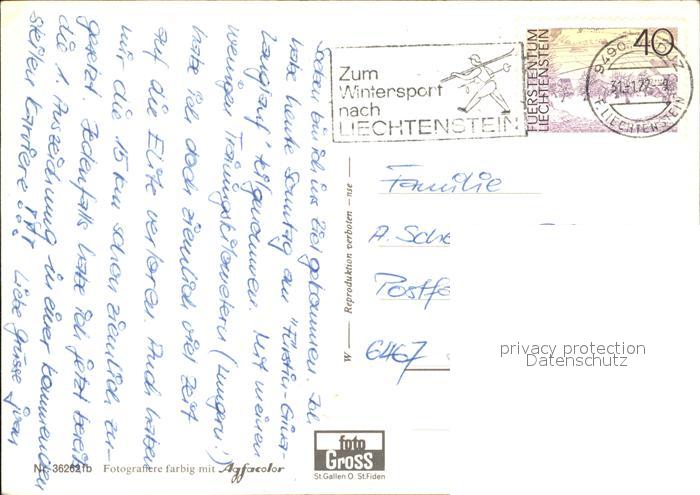 Soeben bin ich ins Ziel gekommen. Ich
habe heute Sonntag am "Fürstin-Gina-
Langlauf" teilgenommen. Mit meinen
wenigen Trainingskilometern (Lungern!)
habe ich doch ziemlich viel Zeit
auf die Elite verloren. Auch haben
mir die 15 km schon ziemlich zu-
gesetzt. Jedenfalls habe ich jetzt bereits
die 1. Auszeichnung in einer kommenden
Skiläufer Karriere!!!
Liebe Grüsse
Zum
Wintersport
nach
LIECHTENSTEIN
FUERSTENTUM
LIECHTENSTEIN
40
9490 VADUZ
F. LIECHTENSTEIN
Familie
A. Sche
Postf
6467
W — Reproduktion verboten – nse —
privacy protection
Datenschutz
Nr. 36262fb Fotografiere farbig mit Agfacolor
foto
GROSS
St.Gallen O St.Fiden